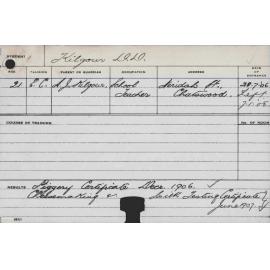 STUDENT
Kilgour D.L.D.
AGE RELIGION PARENT OR GUARDIAN OCCUPATION ADDRESS DATE OF ENTRANCE
21 C.E. A.J. Kilgour, School Teacher St., Chatswood. 28.7.06
Left
7.1.08
COURSE OF TRAINING No. OF ROOM
RESULTS Piggery Certificate Decr. 1906. ✓
Cheesemaking & Milk Testing Certificate
June 1907.